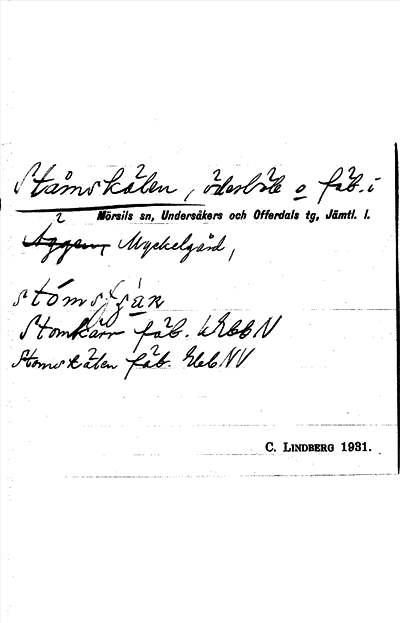 Stamskälen, ödesböle o fäb. i
2 Mörsils sn, Undersåkers och Offerdals tg, Jämtl. l.
Aggen, Myckelgård,
Stomkärr fäb. WEbb N
Stomskälen fäb. Ebb NV
C. LINDBERG 1931.